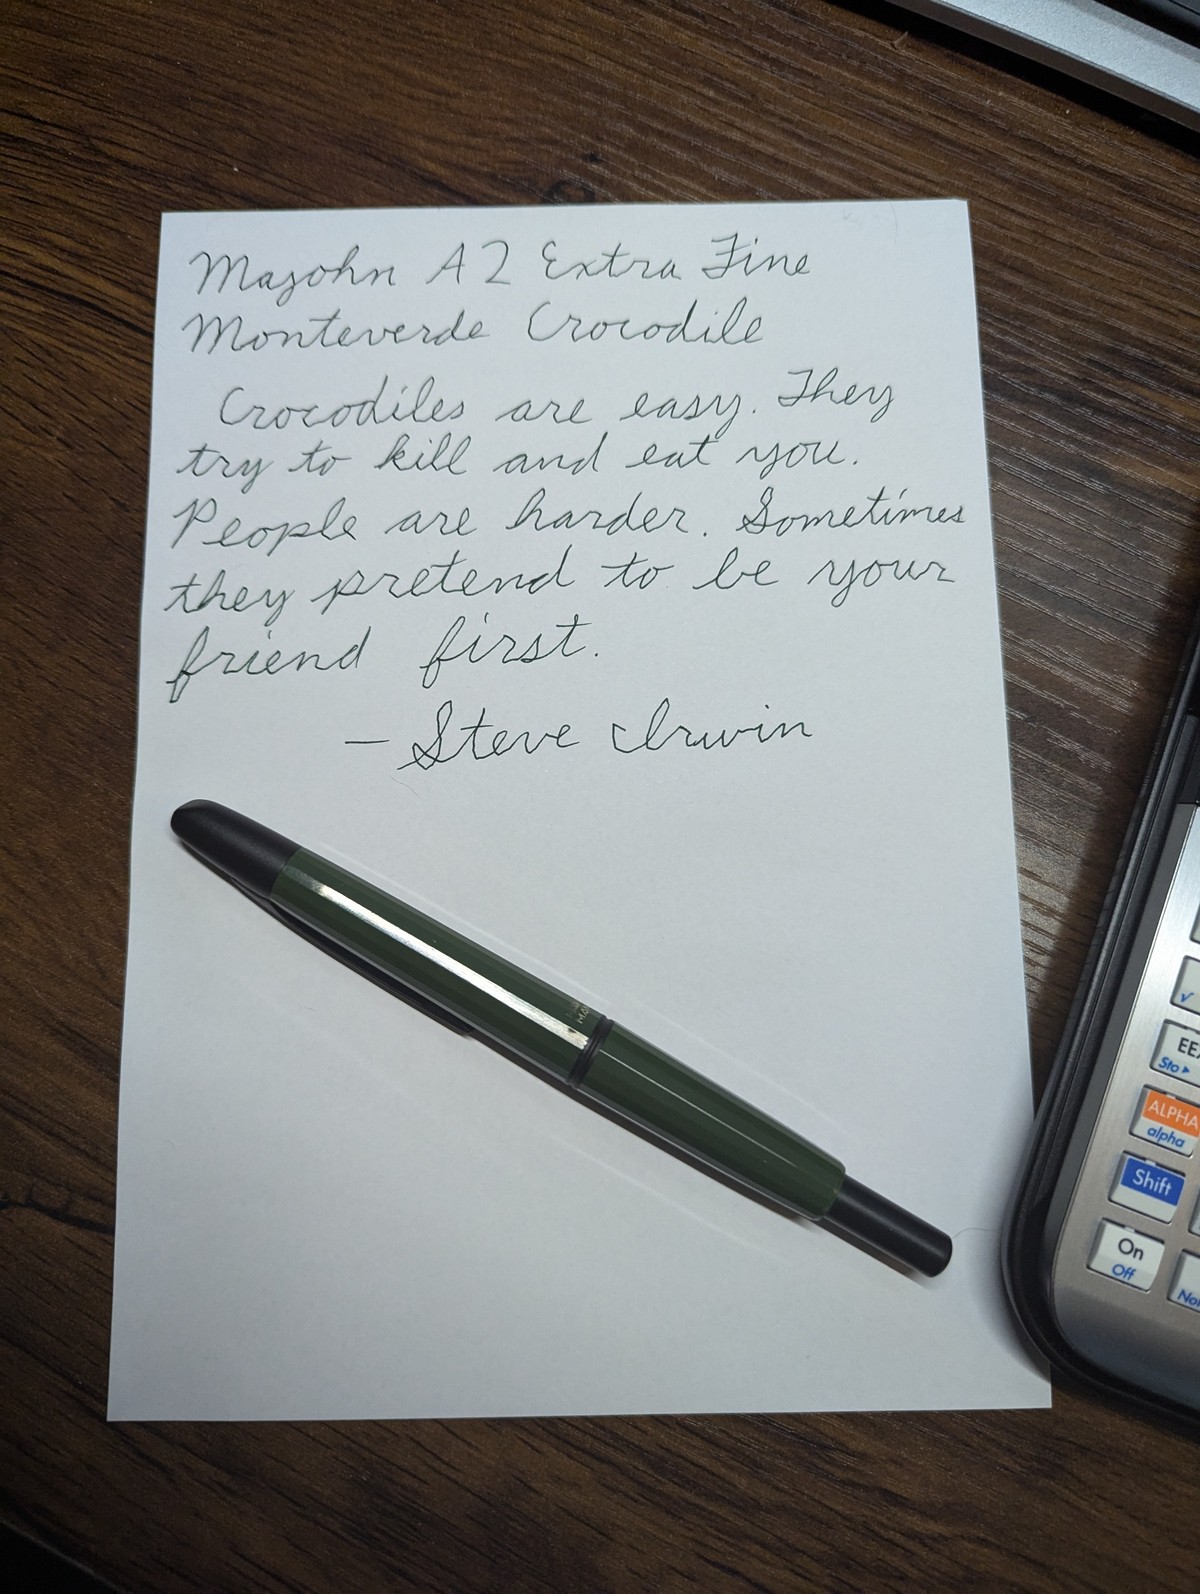 Majohn A2 Extra Fine
Monteverde Crocodile
Crocodiles are easy. They
try to kill and eat you.
People are harder. Sometimes
they pretend to be your
friend first.
— Steve Irwin
MA
√
EEX
Sto ▸
ALPHA
alpha
Shift
On
Off